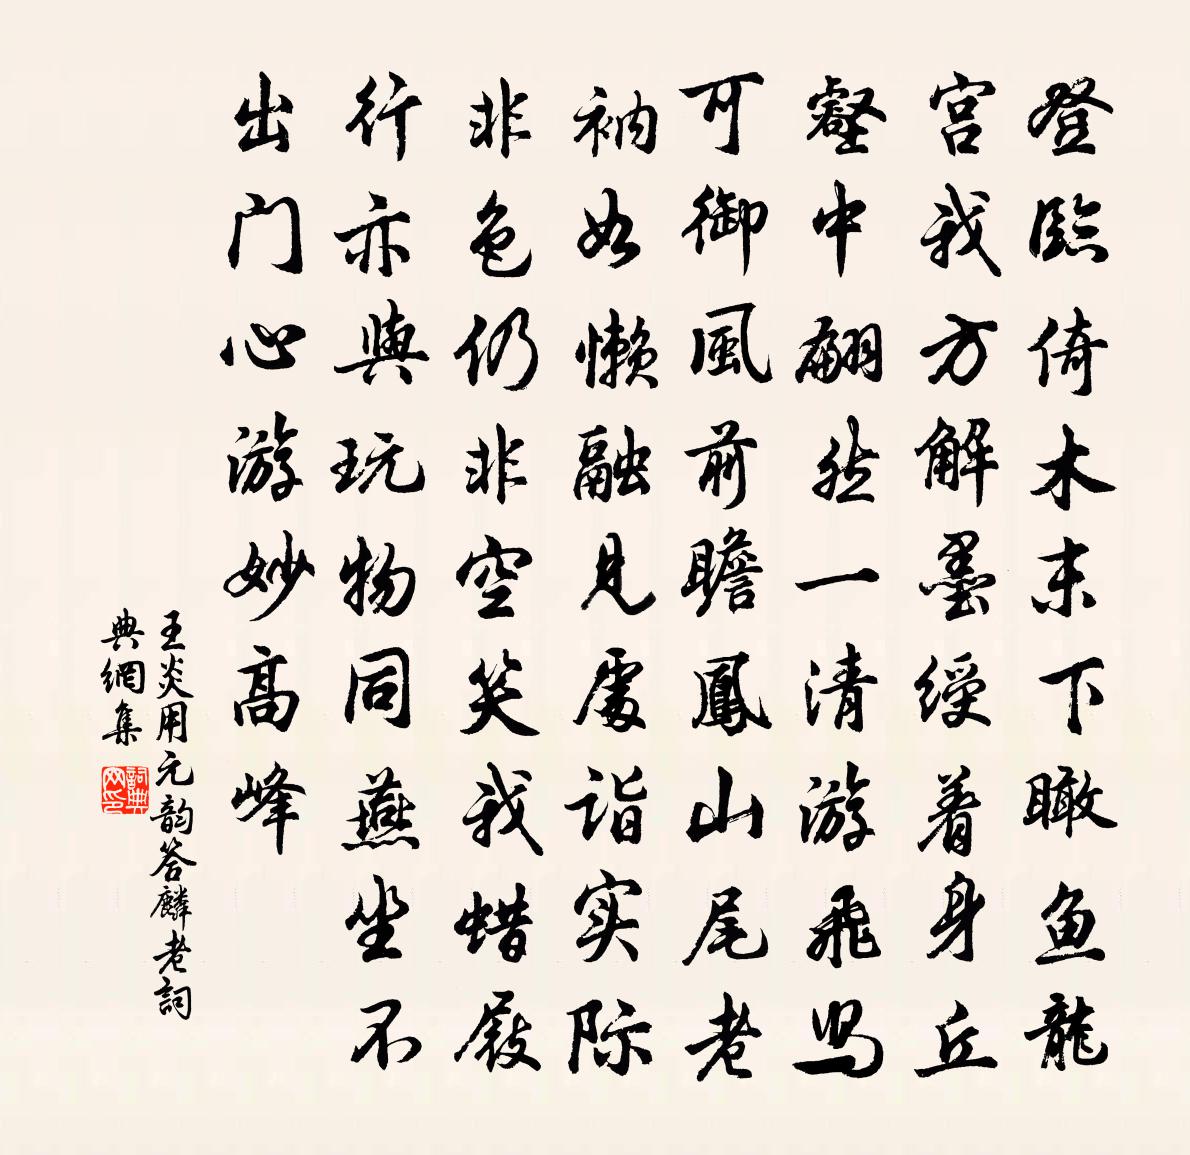 登臨倚木末下瞰鱼龍
宫我方解墨绶着身丘
壑中翩然一清游飛舄
可御風前瞻鳳山尾老
衲如懒融見處诣实际
非色仍非空笑我蜡屐
行亦與玩物同燕坐不
出门心游妙高峰
王炎用元韵答麟老詞
典網集
詞典网印